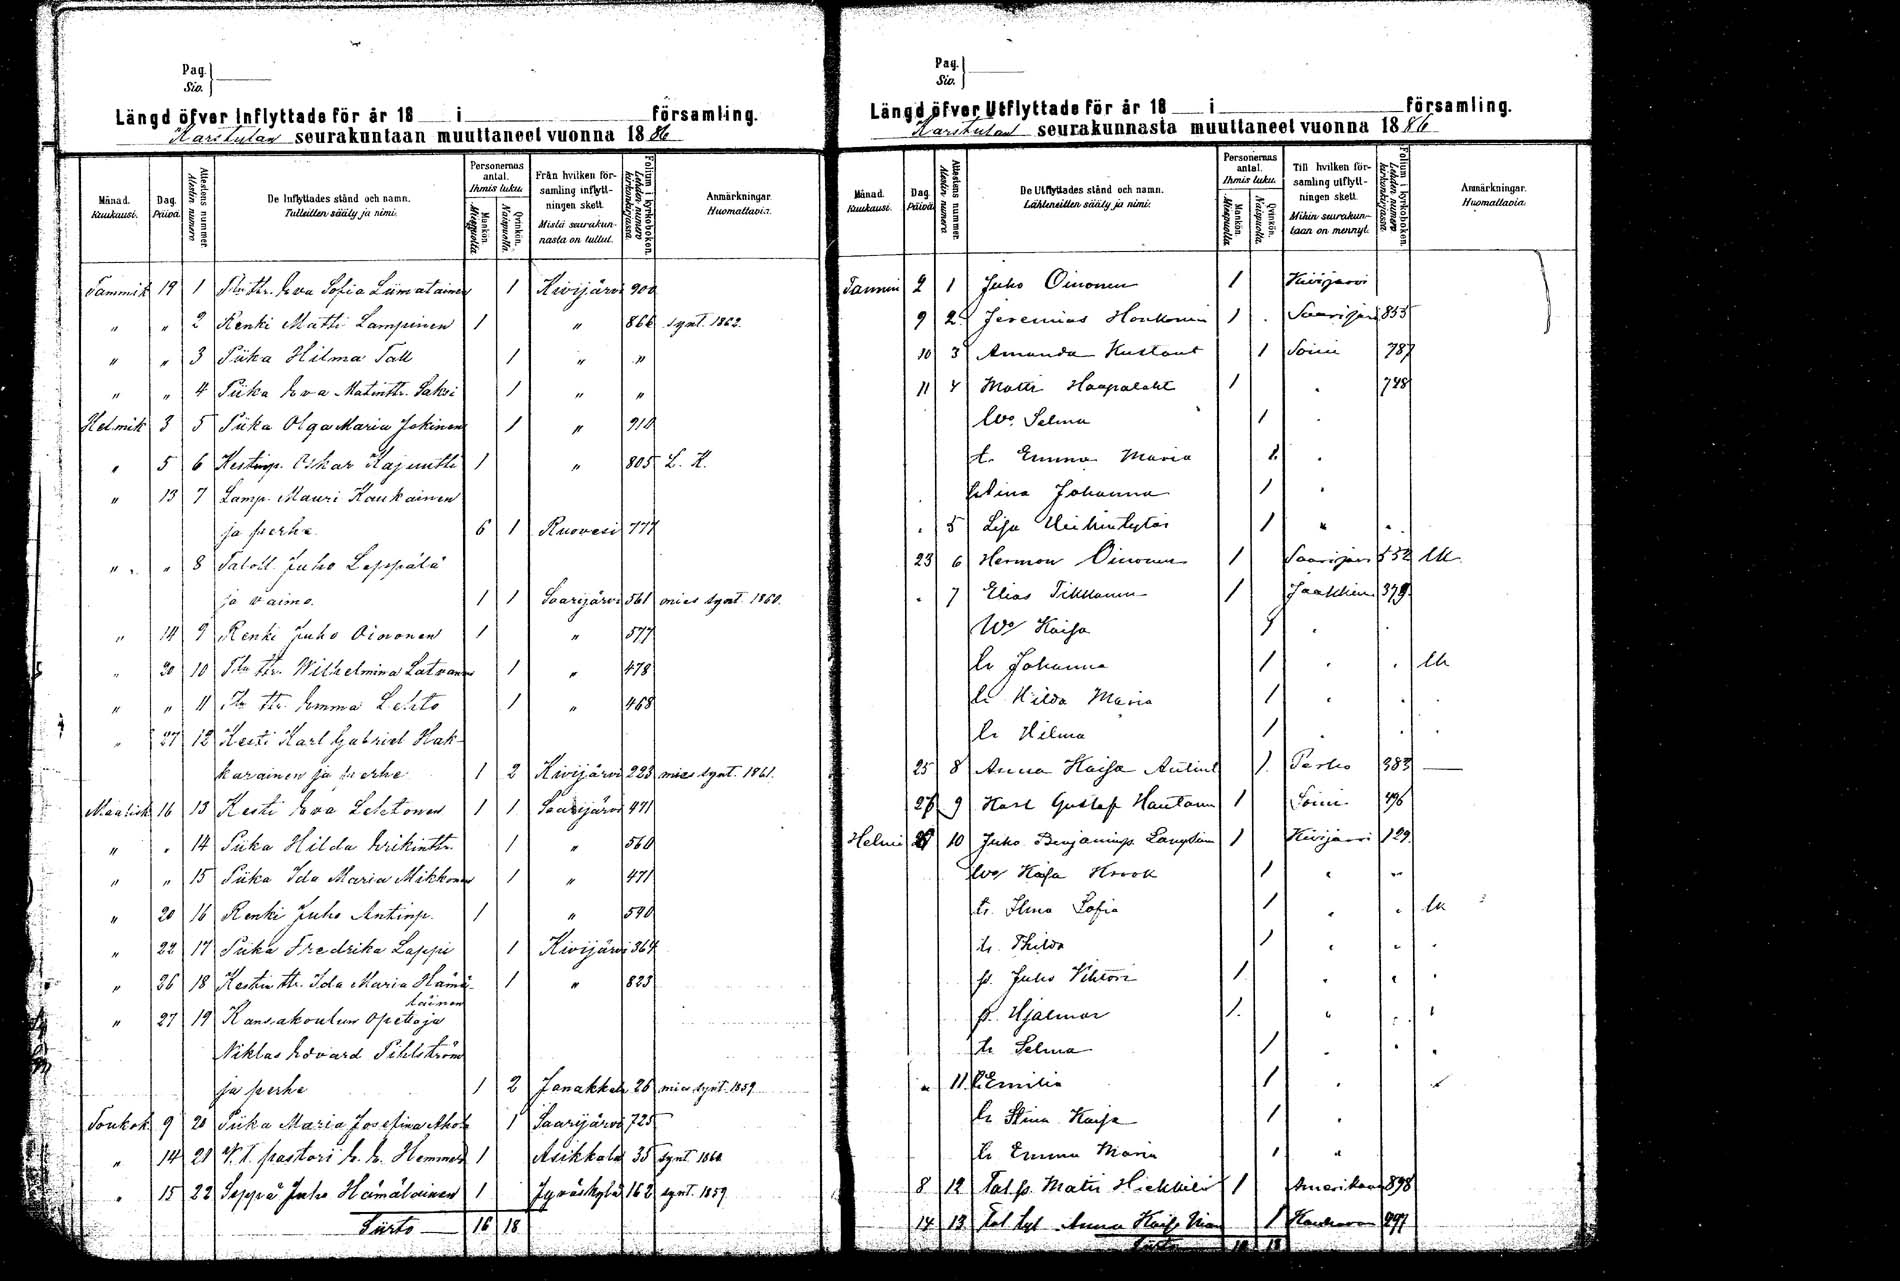 Pag.
Siv.
Längd öfver Inflyttade för år 18 i församling.
Karstulan seurakuntaan muuttaneet vuonna 1886
Månad. Kuukausi.
Dag. Päivä
Attestens nummer Atestin numero
De Inflyttades stånd och namn.
Tulleitten sääty ja nimi.
Personernas antal.
Ihmis luku.
Mankön. Miespuolia
Qvinkön. Naispuolia.
Från hvilken församling inflyttningen skett.
Mistä seurakunnasta on tullut.
Folium i kyrkoboken. Lehden numero kirkonkirjassa
Anmärkningar.
Huomattavia.
Tammik 19 1 Eva Sofia Liimatainen 1 Kivijärvi 900
" " 2 Renki Matti Lampinen 1 " 866 synt. 1862.
" " 3 Piika Hilma Tall 1 " "
" " 4 Piika Eva Matintr. Saksi 1 " "
Helmik 3 5 Piika Olga Maria Jokinen 1 " 910
" 5 6 Kestinp. Oskar Kajuutti 1 " 805 L. K.
" 13 7 Lamp. Mauri Kaukainen
ja perhe 6 1 Ruovesi 777
" " 8 Taloll. Juho Leppälä
ja vaimo. 1 1 Saarijärvi 561 mies synt. 1860.
" 14 9 Renki Juho Oinonen 1 " 577
" 20 10 Wilhelmina Latvanen 1 " 478
" " 11 Emma Lehto 1 " 468
" 27 12 Kesti Karl Gabriel Hak-
karainen ja perhe 1 2 Kivijärvi 223 mies synt. 1861.
Maalisk 16 13 Kesti Eva Lehtonen 1 1 Saarijärvi 471
" " 14 Piika Hilda Erikintr. 1 " 560
" " 15 Piika Ida Maria Mikkonen 1 " 471
" 20 16 Renki Juho Antinp. 1 " 590
" 22 17 Piika Fredrika Lappi 1 Kivijärvi 364
" 26 18 Kestin tr. Ida Maria Hämä-
läinen 1 " 823
" 27 19 Kansakoulun opettaja
Niklas Edvard Pihlström
ja perhe 1 2 Janakkala 26 mies synt. 1859
Toukok 9 20 Piika Maria Josefina Aho 1 Saarijärvi 725
" 14 21 V. t. pastori E. E. Hemmer 1 Asikkala 35 synt 1860
" 15 22 Seppä Juho Hämäläinen 1 Jyväskylä 162 synt. 1859
Siirto 16 18
Pag.
Siv.
Längd öfver Utflyttade för år 18 i församling.
Karstulan seurakunnasta muuttaneet vuonna 1886
Månad. Kuukausi.
Dag. Päivä
Attestens nummer. Atestin numero
De Utflyttades stånd och namn.
Lähteneitten sääty ja nimi.
Personernas antal.
Ihmis luku.
Mankön. Miespuolia
Qvinkön. Naispuolia.
Till hvilken församling utflyttningen skett.
Mihin seurakuntaan on mennyt.
Folium i kyrkoboken. Lehden numero kirkonkirjassa
Anmärkningar.
Huomattavia.
Tammi 2 1 Juho Oinonen 1 Kivijärvi
9 2 Jeremias Honkonen 1 Saarijärvi 855
10 3 Amanda 1 Soini 787
11 4 Matti Haapalaht 1 " 748
Wo. Selma 1 "
t. Emma Maria 1 "
t. Tina Johanna 1 "
" 5 Lisa 1 " "
23 6 Herman Oinonen 1 Saarijärvi 552 lk
" 7 Elias Tikkanen 1 379
Wo Kaisa 1 "
tr Johanna 1 " " lk
tr Hilda Maria 1 " "
tr Hilma 1 " "
25 8 Anna Kaisa 1 Perho 383
26 9 Karl Gustaf Hautanen 1 Soini 496
Helmi 10 Juho Benjaminp. 1 Kivijärvi 129
Wo Kaisa 1 " "
tr. Sofia 1 " " lk
tr. 1 " " "
p. Juho Viktori 1 " " "
p. Hjalmar 1 " " "
tr Selma 1 " " "
" 11 tr Emilia 1 " "
tr Stina Kaisa 1 "
tr Emma Maria 1 "
8 12 Tal. p. Matti 1 Amerikaan 898
14 13 Tal. tyt. Anna Kaisa 1 Kauhava 297
Siirto 10 18